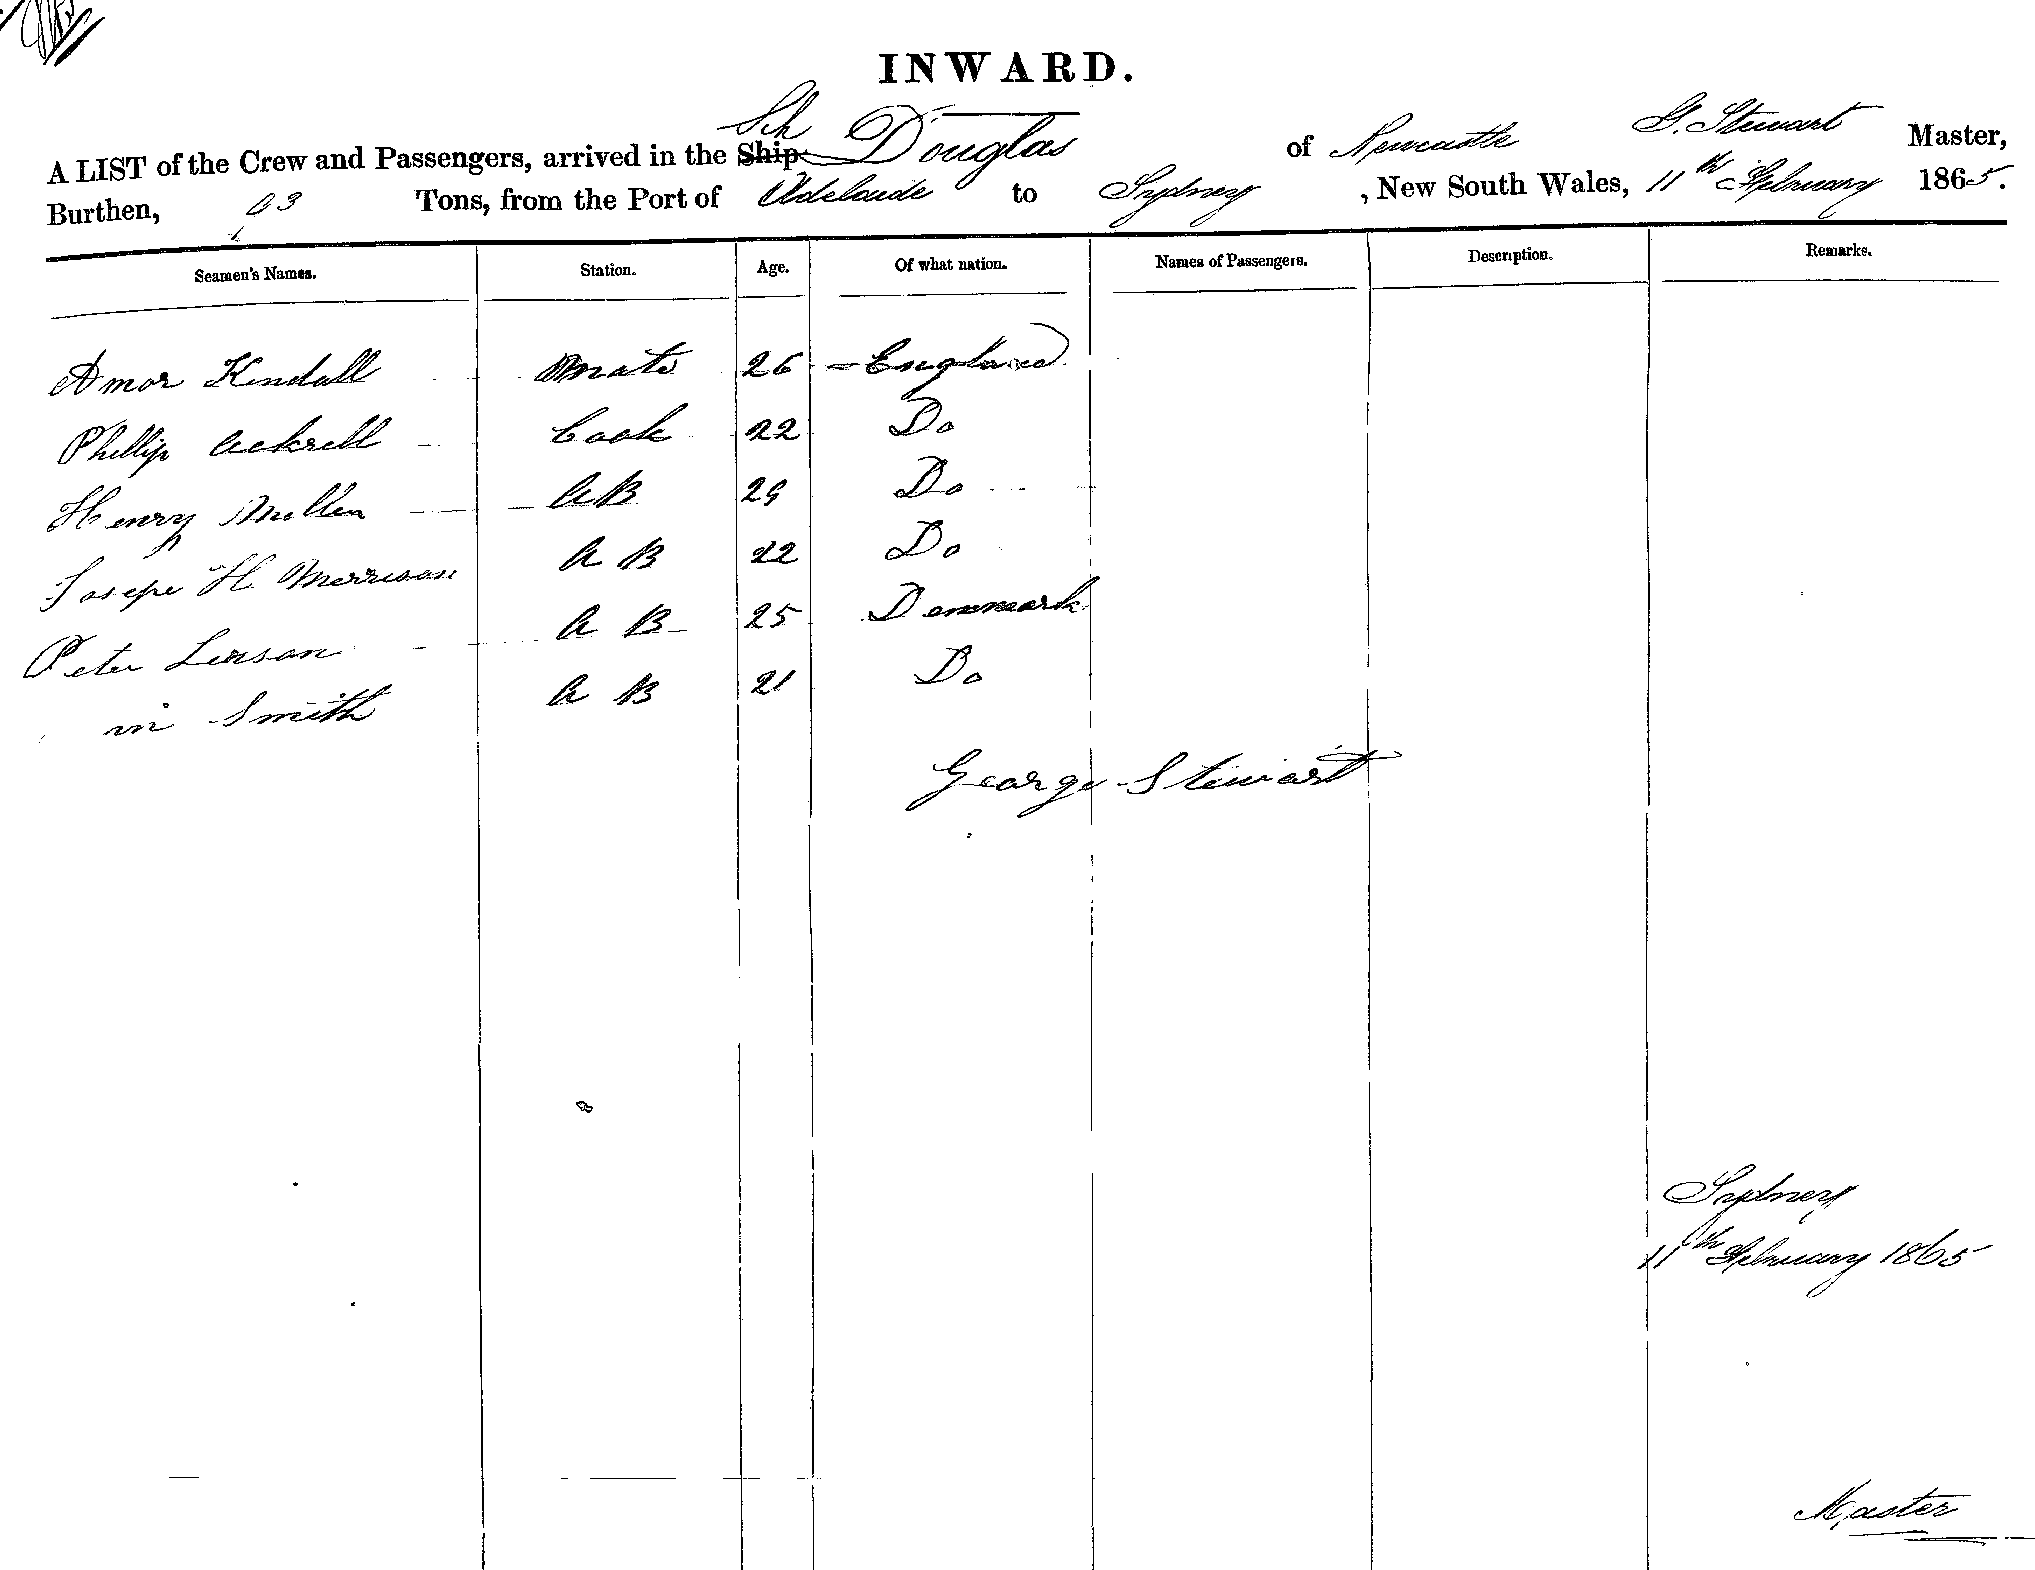 INWARD.
Sch
A LIST of the Crew and Passengers, arrived in the Ship Douglas of Newcastle G. Stewart Master,
Burthen, 93 Tons, from the Port of Adelaide to Sydney, New South Wales, 11th February 1865.
Seamen's Names. Station. Age. Of what nation. Names of Passengers. Description. Remarks.
Amor Kendall Mate 26 England
Phillip Ackrell Cook 22 Do
Henry AB 29 Do
Joseph H. Morrison A B 22 Do
Peter A B 25 Denmark
Smith A B 21 Do
George Stewart
Sydney
11th February 1865
Master